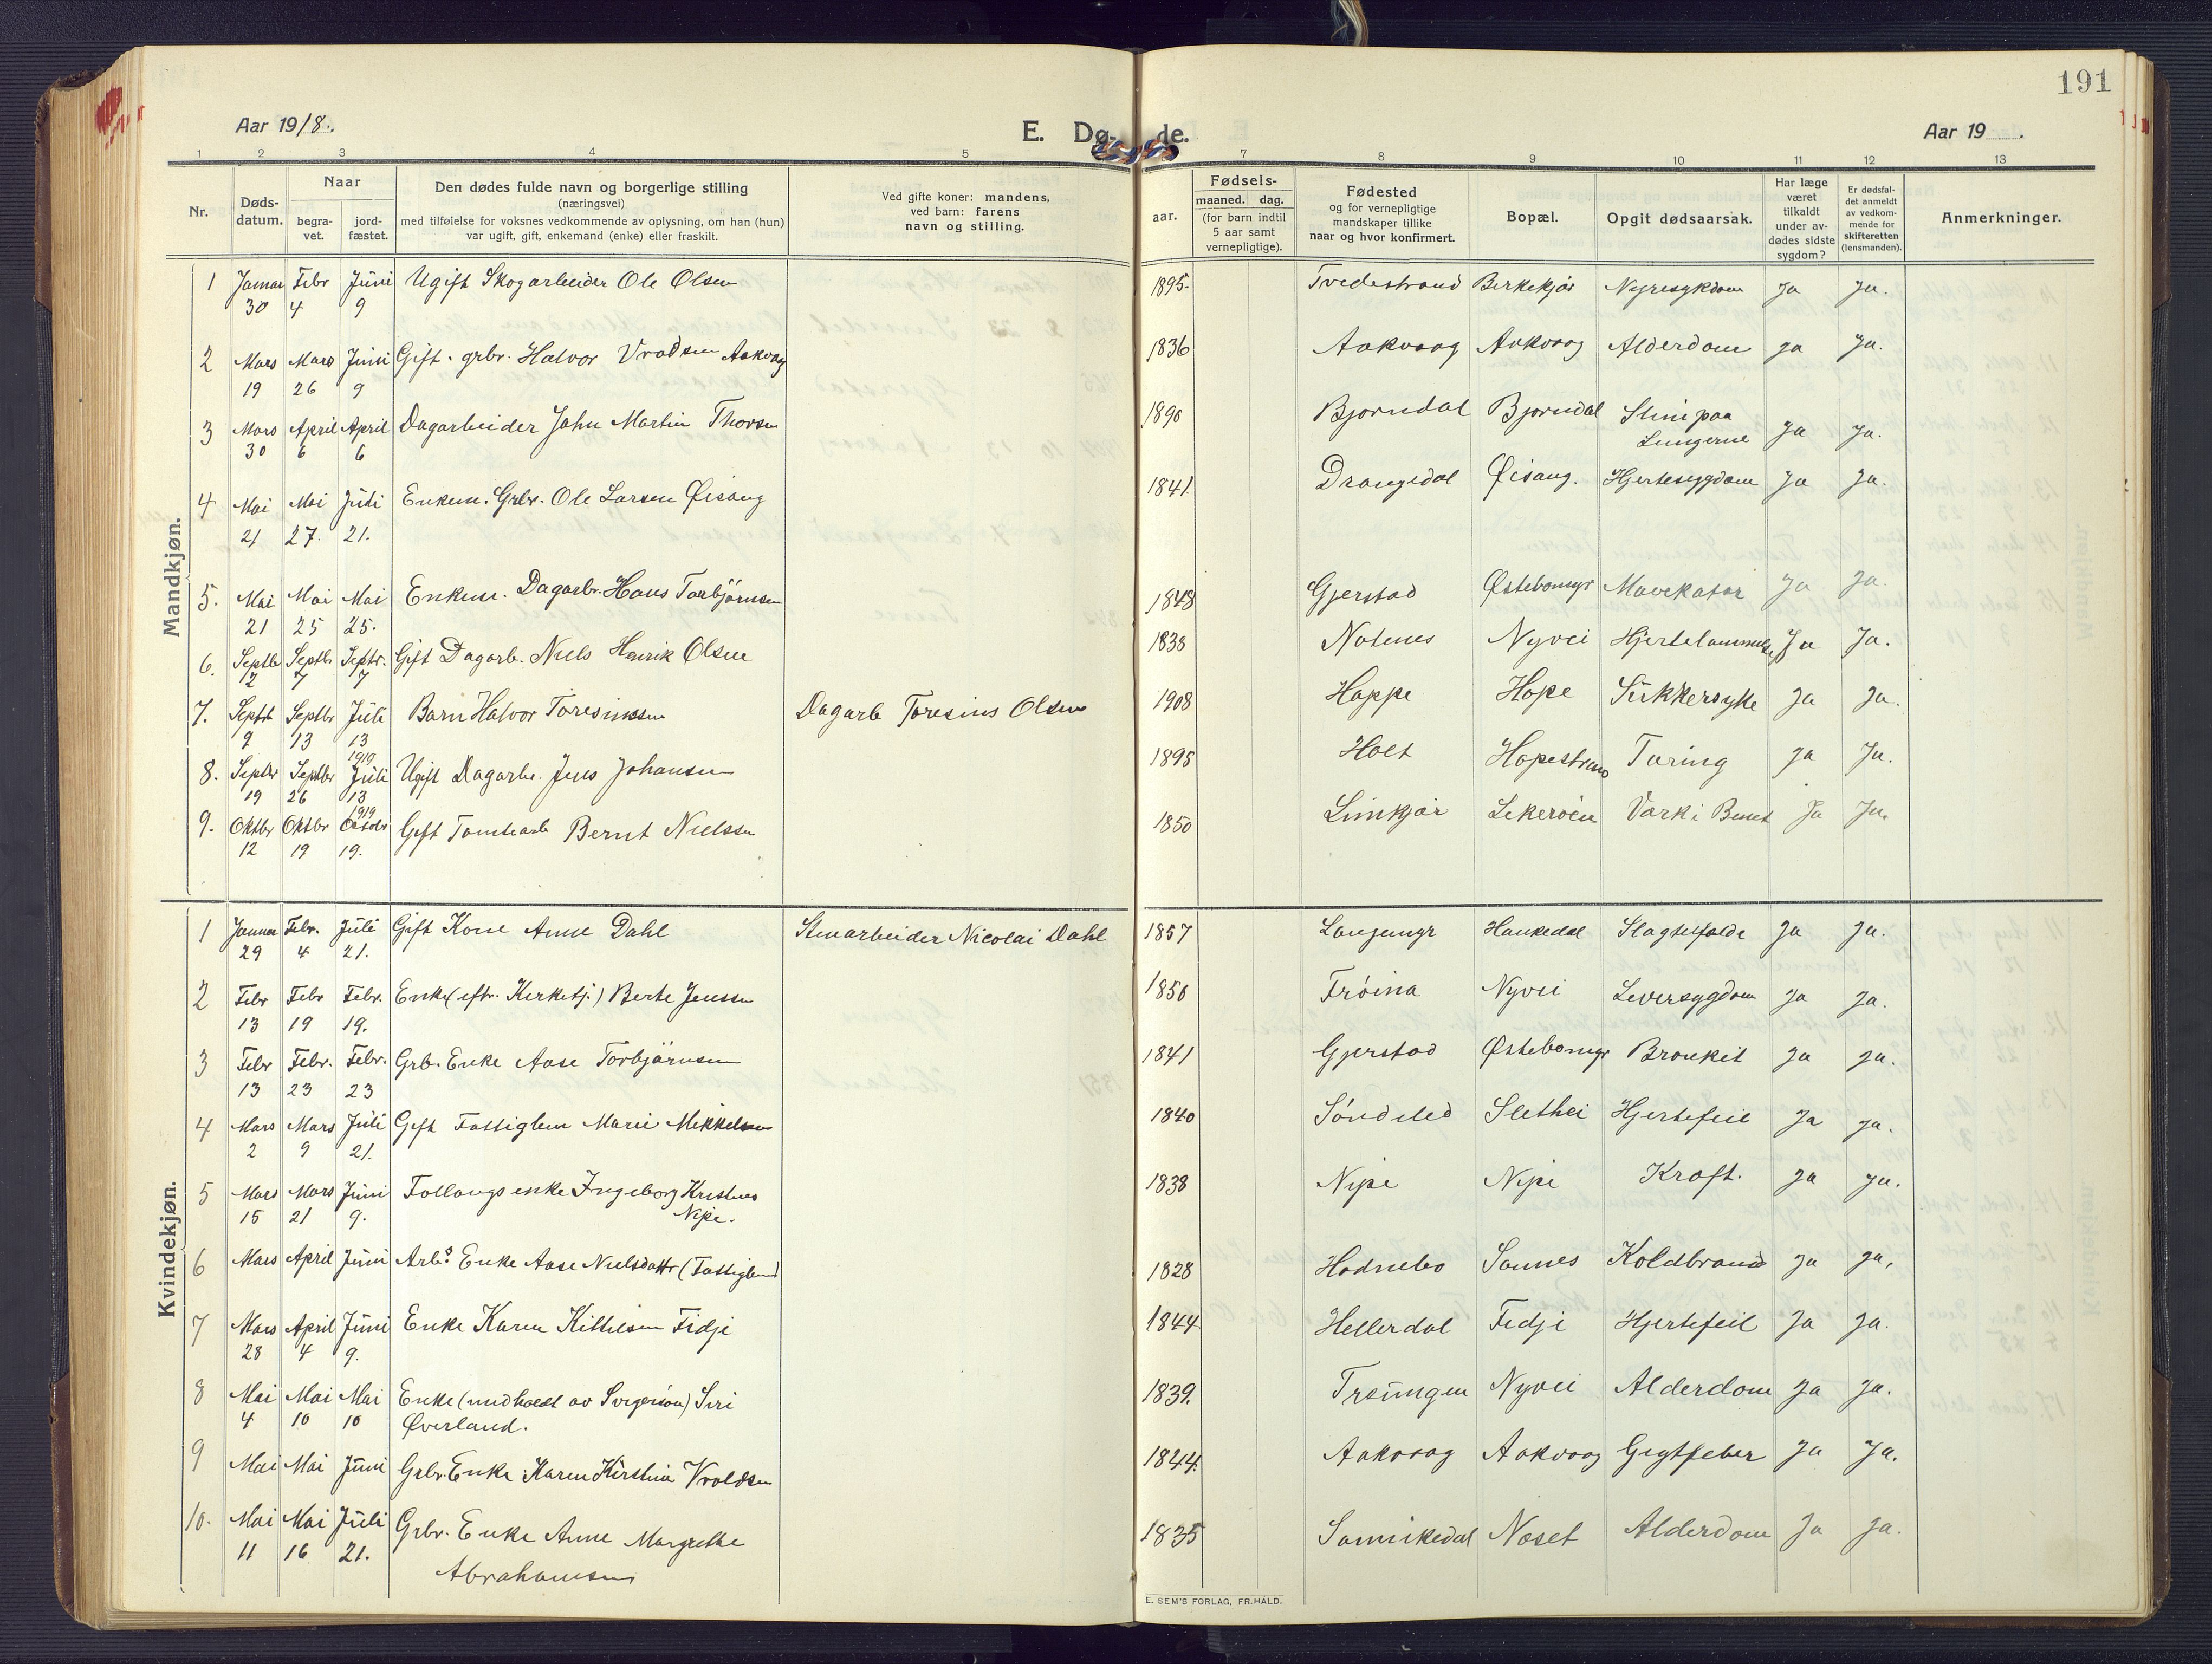 191
Aar 1918.
E. Dø- de.
Aar 19 .
1 2 3 4 5 7 8 9 10 11 12 13
Nr.
Døds-
datum.
Naar
begra-
vet.
jord-
fæstet.
Den dødes fulde navn og borgerlige stilling
(næringsvei)
med tilføielse for voksnes vedkommende av oplysning, om han (hun)
var ugift, gift, enkemand (enke) eller fraskilt.
Ved gifte koner: mandens,
ved barn: farens
navn og stilling.
aar.
Fødsels-
maaned. dag.
(for barn indtil
5 aar samt
vernepligtige).
Fødested
og for vernepligtige
mandskaper tillike
naar og hvor konfirmert.
Bopæl.
Opgit dødsaarsak.
Har læge
været
tilkaldt
under av-
dødes sidste
sygdom?
Er dødsfal-
det anmeldt
av vedkom-
mende for
skifteretten
(lensmanden).
Anmerkninger.
Mandkjøn.
1 Januar Febr Juni Ugift Skogarbeider Ole Olsen 1895. Tvedestrand Birkekjær Nyresykdom Ja Ja.
30 4 9
2 Mars Mars Juni Gift. grbr. Halvor Vrodsen Aakvaag 1836 Aakvaag Aakvaag Alderdom ja ja.
19 26 9
3 Mars April April Dagarbeider John Martin Thorsen 1890 Bjorndal Bjorndal Slim paa
Lungerne ja ja.
30 6 6
4 Mai Mai Juli Enkem. Grbr. Ole Larsen Øisang 1841. Drangedal Øisang. Hjertesygdom ja ja.
21 27. 21.
5. Mai Mai Mai Enkem. Dagarb. Hans Torbjörnsen 1848 Gjerstad Østebomyr Mavekatar ja ja.
21 25 25.
6. Septb Septbr Septr. Gift Dagarb. Niels Henrik Olsen 1838 Notenes Nyvei Hjertelammelse Ja Ja.
2 7 7
7. Septr Septbr Juli Barn Halvor Toresinssen Dagarb Toresius Olsen 1908 Hoppe Hope Sukkersyke ja ja.
9 13 13
1919
8. Septbr Septbr Juli Ugift Dagarbr. Jens Johansen 1895 Holt Hopestrand Tæring ja Ja.
19 26 13
1919
9. Oktbr Oktbr Octobr Gift Tomtearb Bernt Nielsen 1850 Limkjær Lekeröen Værk i Benet Ja Ja.
12 19 19.
Kvindekjøn.
1 Januar Febr. Juli Gift Kone Anne Dahl Stenarbeider Nicolai Dahl 1857 Langemyr Haukedal Slagtilfælde ja ja.
29 4 21.
2 Febr Febr Febr. Enke (eftr. Kirketj.) Berte Jenssen 1850 Fröina Nyvei Leversygdom ja ja.
13 19 19.
3 Febr Febr. Febr. Grb. Enke Aase Torbjörnsen 1841 Gjerstad Østebomyr Bronkit ja ja.
13 23 23
4 Mars Mars Juli Gift Fattiglem Marie Mikkelsen 1840 Söndeled Slethei Hjertefeil ja ja.
2 9 21.
5 Mars Mars Juni Follaugs enke Ingeborg Kristines
Nipe. 1838 Nipe Nipe Kræft. ja ja.
15 21 9.
6 Mars April Juni Arbs Enke Aase Nielsdattr (Fattiglem) 1828 Hodnebo Sannes Koldbrand ja ja,
7 Mars April Juni Enke Karen Kittelsen Fidje 1844 Hellerdal Fidje Hjertefeil Ja ja.
28 4 9.
8 Mai Mai Mai Enke (underholdt av Svigersön) Siri
Øverland. 1839. Treungen Nyvei Alderdom ja ja.
4 10 10
9 Mai Mai Juni Grbr. Enke Karen Kirstine Vroldsen 1844. Aakvaag Aakvaag Gigtfeber ja Ja.
10. Mai Mai Juli Grbr. Enke Anne Margrethe
Abrahamsen 1835 Sannikedal Næset Alderdom Ja ja.
11 16 21.
E. SEM'S FORLAG, FR.HALD.